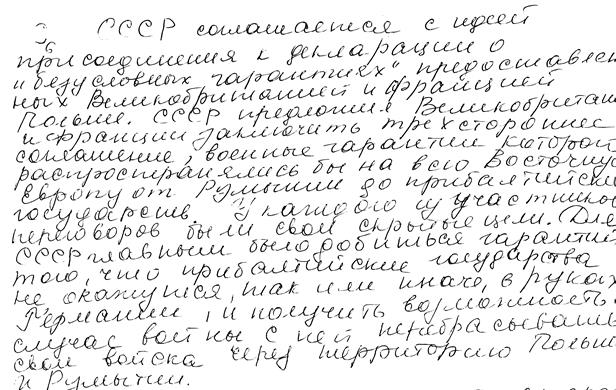 СССР соглашается с идеей
присоединения к декларации о
"безусловных гарантиях" предоставлен-
ных Великобританией и Францией
Польше. СССР предложил Великобритан
и Франции заключить трехстороннее
соглашение, военные гарантии которой
распространялись бы на всю Восточную
Европу от Румынии до прибалтийских
государств. У каждого из участников
переговоров были свои скрытые цели. Для
СССР главным было добиться гарантий
того, что прибалтийские государства
не окажутся, так или иначе, в руках
Германии, и получить возможность
случае войны с ней перебрасывать
свои войска через территорию Польши
и Румынии.